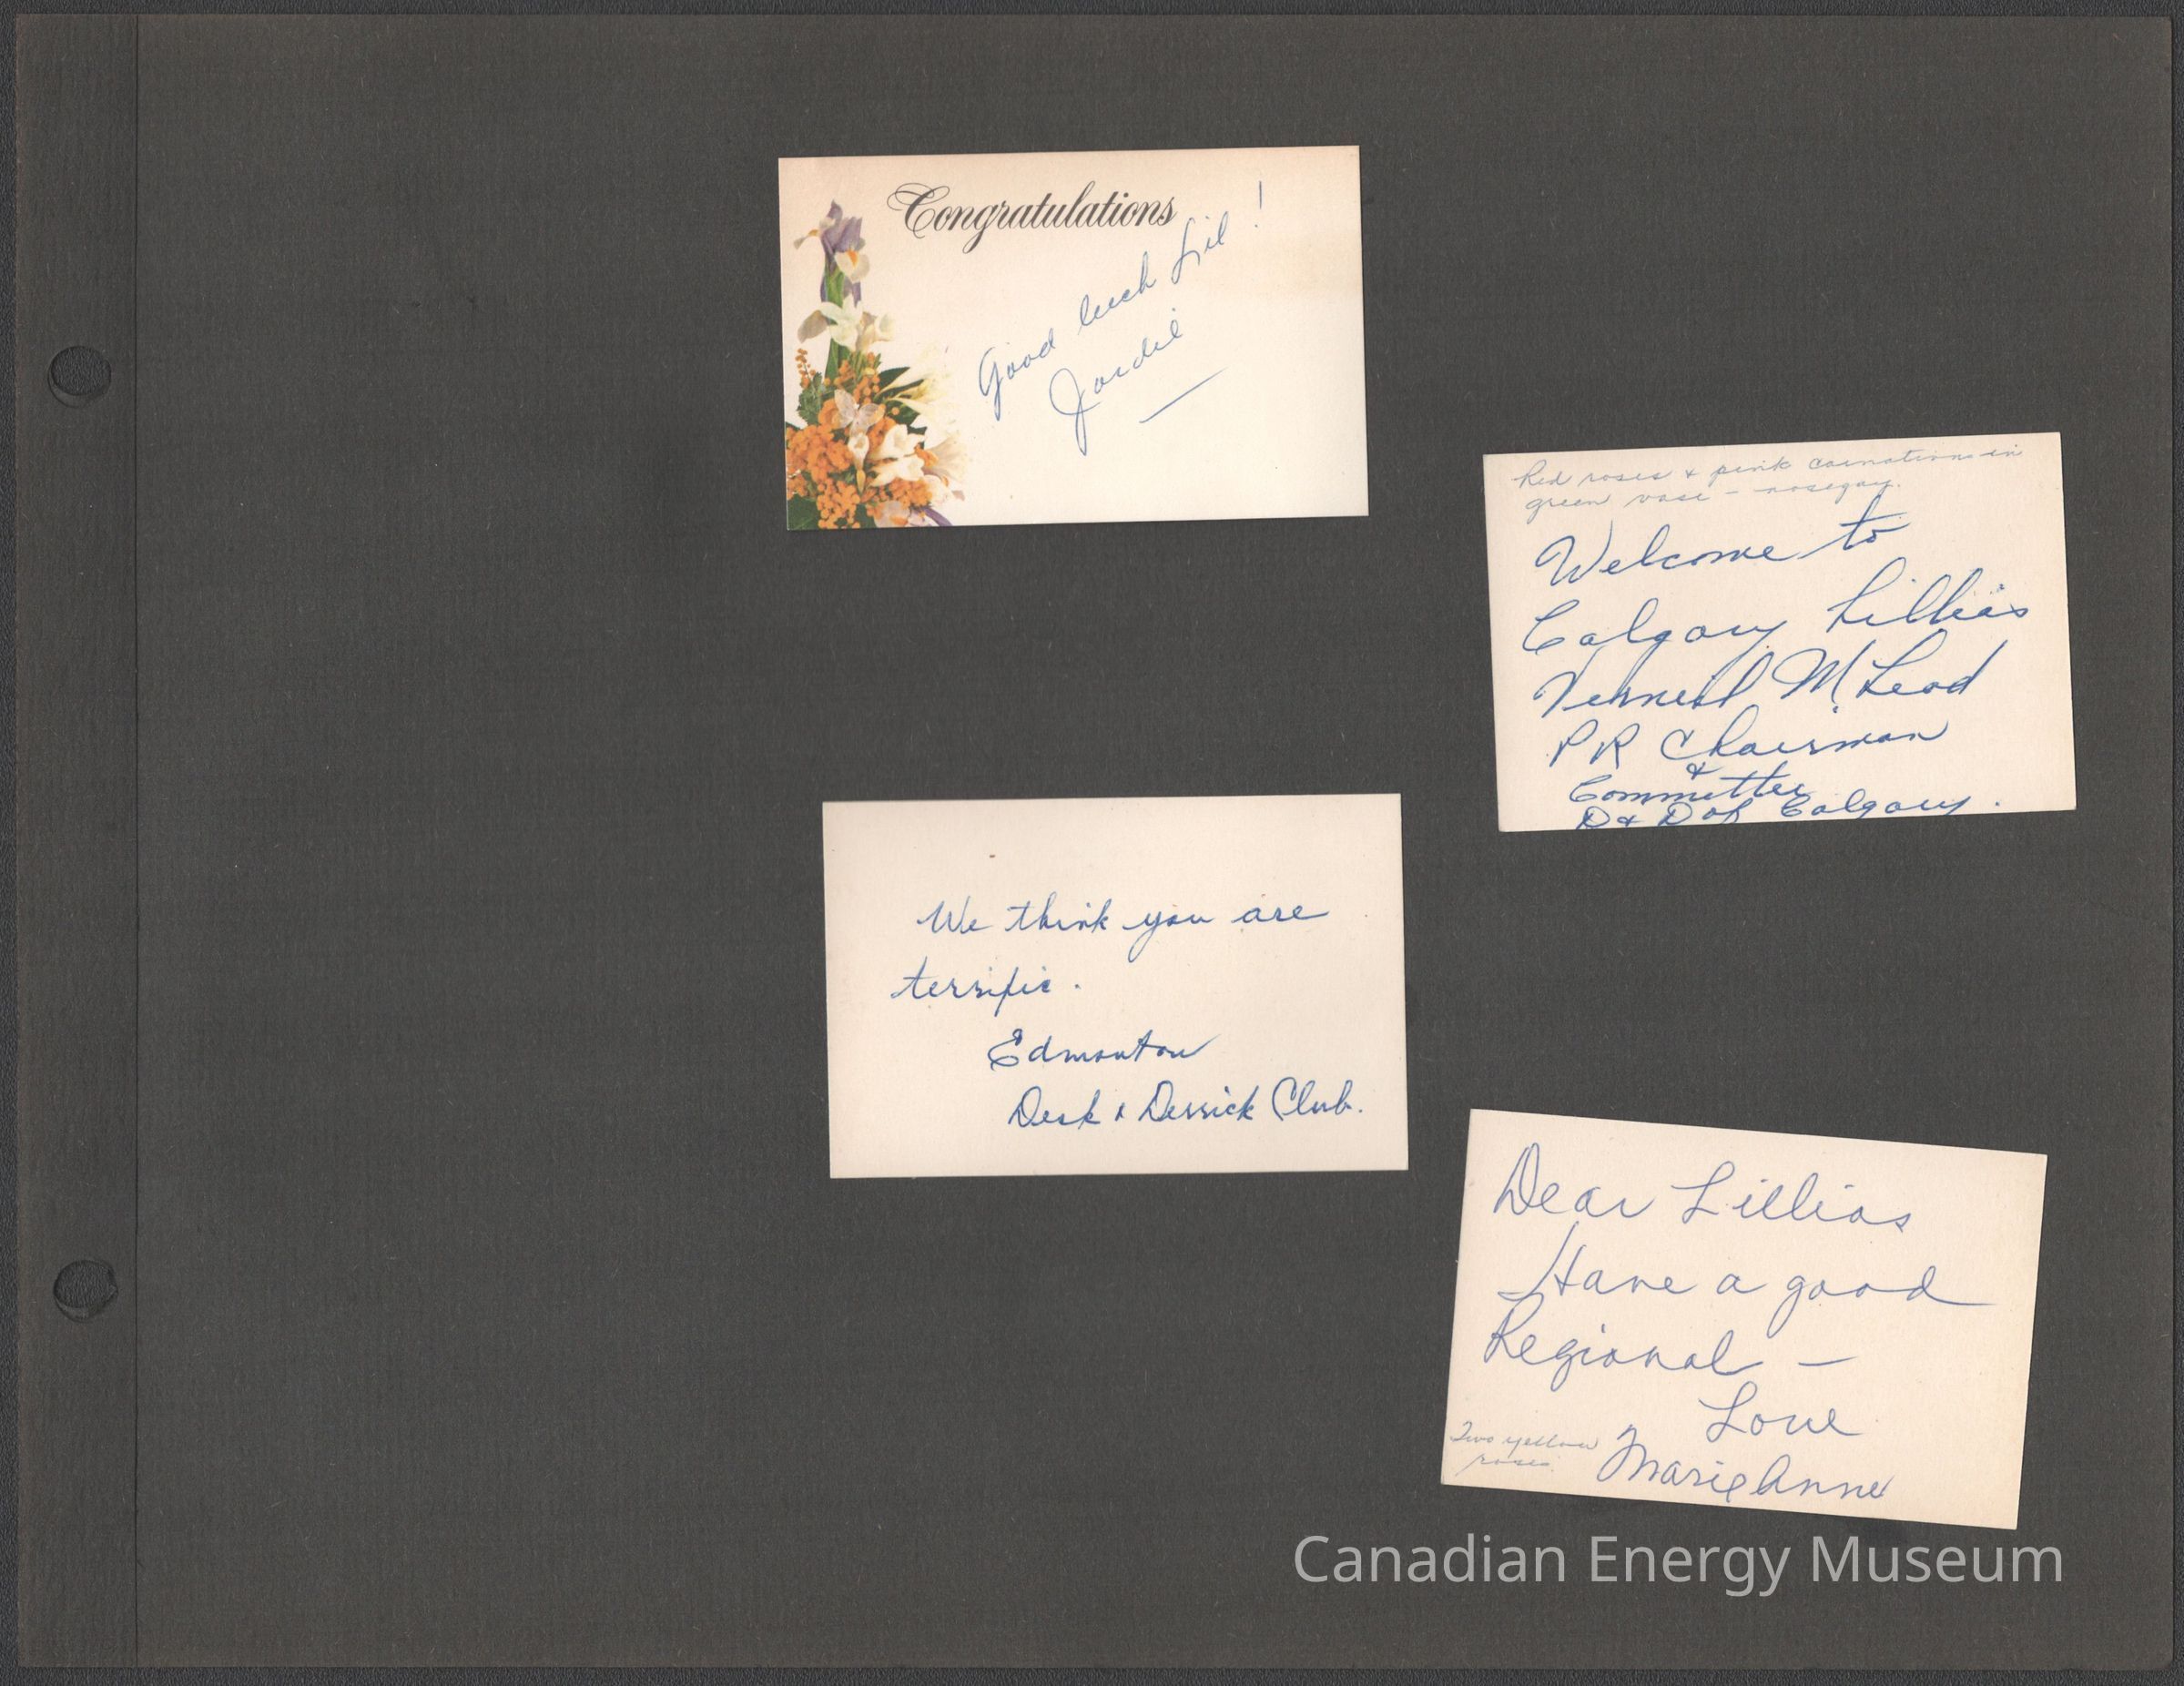 Congratulations
Good luck Lil!
Jordie
Red roses & pink carnations in
green vase - nosegay.
Welcome to
Calgary Lillias
McLeod
PR Chairman
&
Committee
D & D of Calgary.
We think you are
terrific.
Edmonton
Desk & Derrick Club.
Dear Lillias
Have a good
Regional —
Love
Marie Anne
Two yellow
roses
Canadian Energy Museum